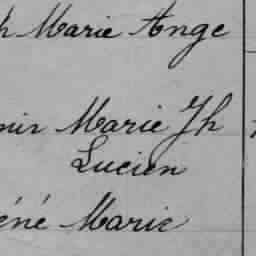 h Marie Ange
nir Marie Jh
Lucien
éné Marie